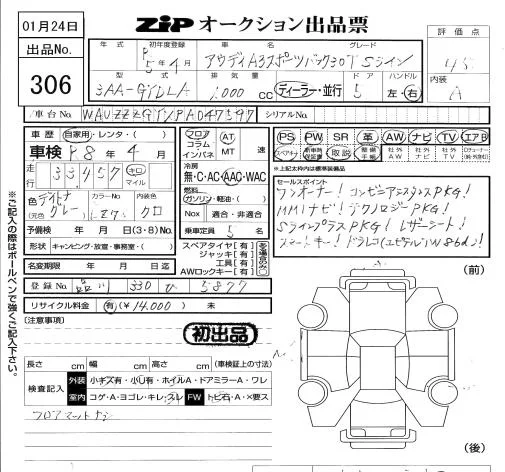 01月24日
ZIP オークション出品票
出品No.
306
年式 初年度登録 車名 グレード
R5年4月 アウディA3スポーツバック30TFSIライン
型式 排気量 ドア ハンドル
3AA-GYDLA 1,000 CC ディーラー・並行 5 左・右
評価点
4.5
内装
A
車台No. WAUZZZGY7PA047597 シリアルNo.
車歴 自家用・レンタ・( )
車検 R8年4月
走行 33,457 キロ マイル
色 デイトナグレー カラーNo. LZ7S 内装色 クロ
(元色)
予備検 年 月 日(3・8)No.
形状 キャンピング・放宣・事務室・( )
フロア コラム インパネ AT MT 速
冷房
無・C・AC・AAC・WAC
燃料
ガソリン・軽油・( )
Nox 適合・非適合
乗車定員 5 名
スペアタイヤ[有]
ジャッキ[有]
工具[有]
AWロックキー[有]
PS PW SR 革 AW ナビ TV エアB
スペアキー 取説 整備手帳 社外AW 社外ナビ
※上記太枠内は標準装備品
セールスポイント
ワンオーナー! コンビニアシスタンスPKG!
MMIナビ! テクノロジーPKG!
SラインプラスPKG! レザーシート!
スマートキー! ドラレコ
名変期限 年 月 日迄
登録No. 品川 330 ひ 5877
リサイクル料金 有(¥14,000) 未
(注意事項)
初出品
(前)
長さ cm 幅 cm 高さ cm (車検証上の寸法)
検査記入 外装 小キズ有・小U有・ホイルA・ドアミラーA・ワレ
室内 コゲ・A・ヨゴレ・キレ・スレ FW トビ石・A・×要ス
フロアマットナシ
(後)
※ご記入の際はボールペンで強くご記入下さい。